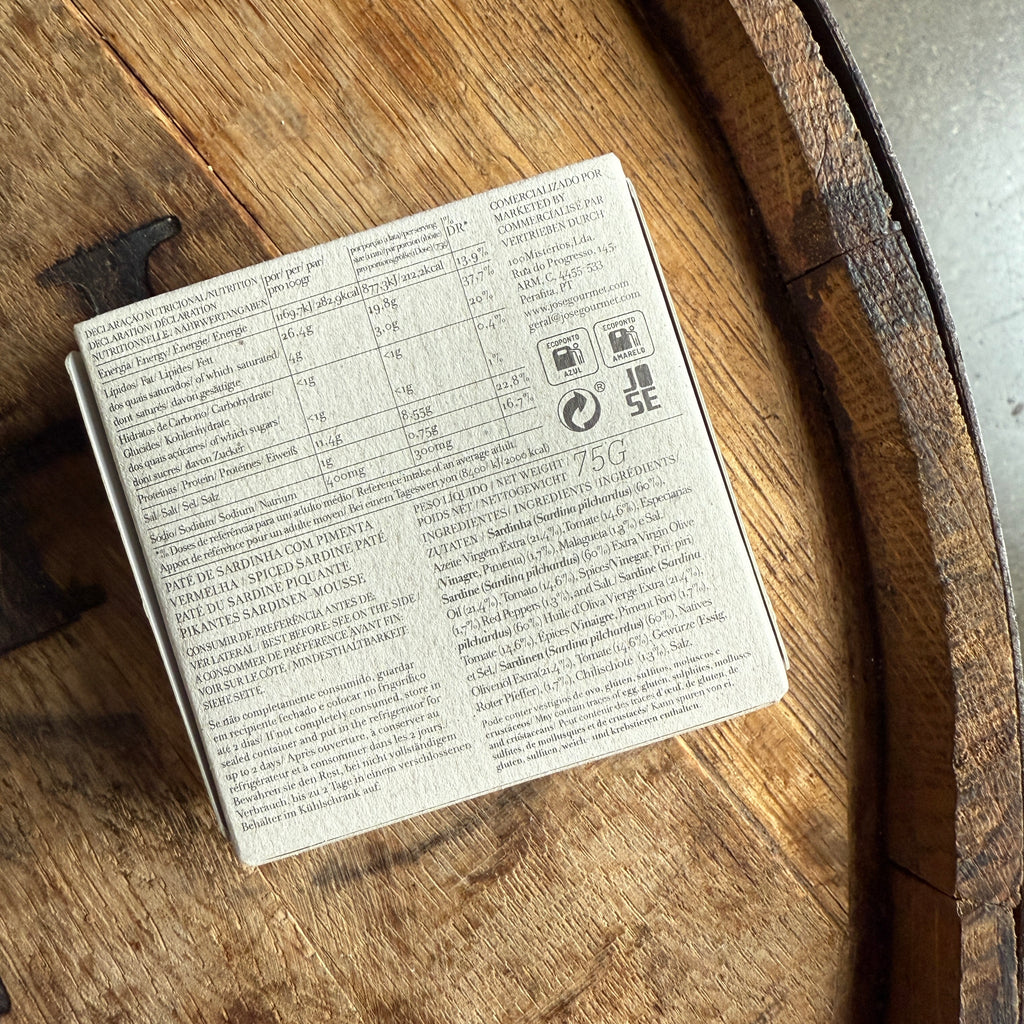 DECLARAÇÃO NUTRICIONAL/NUTRITION
DECLARATION/ DÉCLARATION
NUTRITIONNELLE/ NÄHRWERTANGABEN
por/ per/ par/
pro 100gr
por porção (1 lata)/per serving
size (1 tin)/ par portion (1 boîte)/
pro portionsgröße (1 Dose)/ 75g
DR*
Energia/ Energy/ Énergie/ Energie 1169.7kJ/ 282.9kcal 877.3kJ/ 212.2kcal 13.9%
Lípidos/ Fat/ Lipides/ Fett 26.4g 19.8g 37.7%
dos quais saturados/ of which saturated/
dont saturés/ davon gesättigte 4g 3.0g 20%
Hidratos de Carbono/ Carbohydrate/
Glucides/ Kohlenhydrate <1g <1g 0.4%
dos quais açúcares/ of which sugars/
dont sucres/ davon Zucker <1g <1g
Proteínas/ Protein/ Protéines/ Eiweiß 11.4g 8.55g 22.8%
Sal/ Salt/ Sel/ Salz 1g 0.75g 16.7%
Sodio/ Sodium/ Sodium/ Natrium 400mg 300mg
*% Doses de referência para um adulto médio/ Reference intake of an average adult/
Apport de référence pour un adulte moyen/ Bei einem Tageswert von (8400 kJ/2000 kcal)
COMERCIALIZADO POR
MARKETED BY
COMMERCIALISÉ PAR
VERTRIEBEN DURCH
100Mistérios, Lda.
Rua do Progresso, 145,
ARM. C, 4455-533
Perafita, PT
www.josegourmet.com
geral@josegourmet.com
ECOPONTO
AZUL
ECOPONTO
AMARELO
®
JO
SE
PATÉ DE SARDINHA COM PIMENTA
VERMELHA / SPICED SARDINE PATÉ
PATÉ DU SARDINE PIQUANTE
PIKANTES SARDINEN-MOUSSE
CONSUMIR DE PREFERÊNCIA ANTES DE:
VER LATERAL / BEST BEFORE: SEE ON THE SIDE /
A CONSOMMER DE PRÉFÉRENCE AVANT FIN:
VOIR SUR LE CÔTÉ / MINDESTHALTBARKEIT:
SIEHE SEITE.
Se não completamente consumido, guardar
em recipiente fechado e colocar no frigorífico
até 2 dias/ If not completely consumed, store in
sealed container and put in the refrigerator for
up to 2 days/ Après ouverture, à conserver au
réfrigérateur et à consommer dans les 2 jours
Bewahren sie den Rest, bei nicht vollständigem
Verbrauch, bis zu 2 Tage in einem verschlossenen
Behälter im Kühlschrank auf.
PESO LÍQUIDO / NET WEIGHT
POIDS NET / NETTOGEWICHT 75G
INGREDIENTES/ INGREDIENTS /INGRÉDIENTS/
ZUTATEN / Sardinha (Sardina pilchardus) (60%),
Azeite Virgem Extra (21,4%), Tomate (14,6%), Especiarias
(Vinagre, Pimenta) (1,7%), Malagueta (1,3%) e Sal.
Sardine (Sardina pilchardus) (60%) Extra Virgin Olive
Oil (21,4%), Tomato (14,6%), Spices(Vinegar, Piri-piri)
(1,7%) Red Peppers (1,3%), and Salt./ Sardine (Sardina
pilchardus) (60%) Huile d'Oliva Vierge Extra (21,4%),
Tomate (14,6%), Épices (Vinaigre, Piment Fort) (1,7%),
et Sel./ Sardinen (Sardina pilchardus) (60%), Natives
Olivenöl Extra(21,4%), Tomate (14,6%), Gewürze (Essig,
Roter Pfeffer), (1,7%), Chilischote (1,3%), Salz.
Pode conter vestígios de ovo, glúten, sulfitos, moluscos e
crustáceos/ May contain traces of egg, gluten, sulphites, molluscs
and cristaceans/ Peut contenir des traces d'œuf, de gluten, de
sulfites, de mollusques de crustacés/ Kann spuren von ei,
gluten, sulfiten, weich- und krebstieren enthalten.